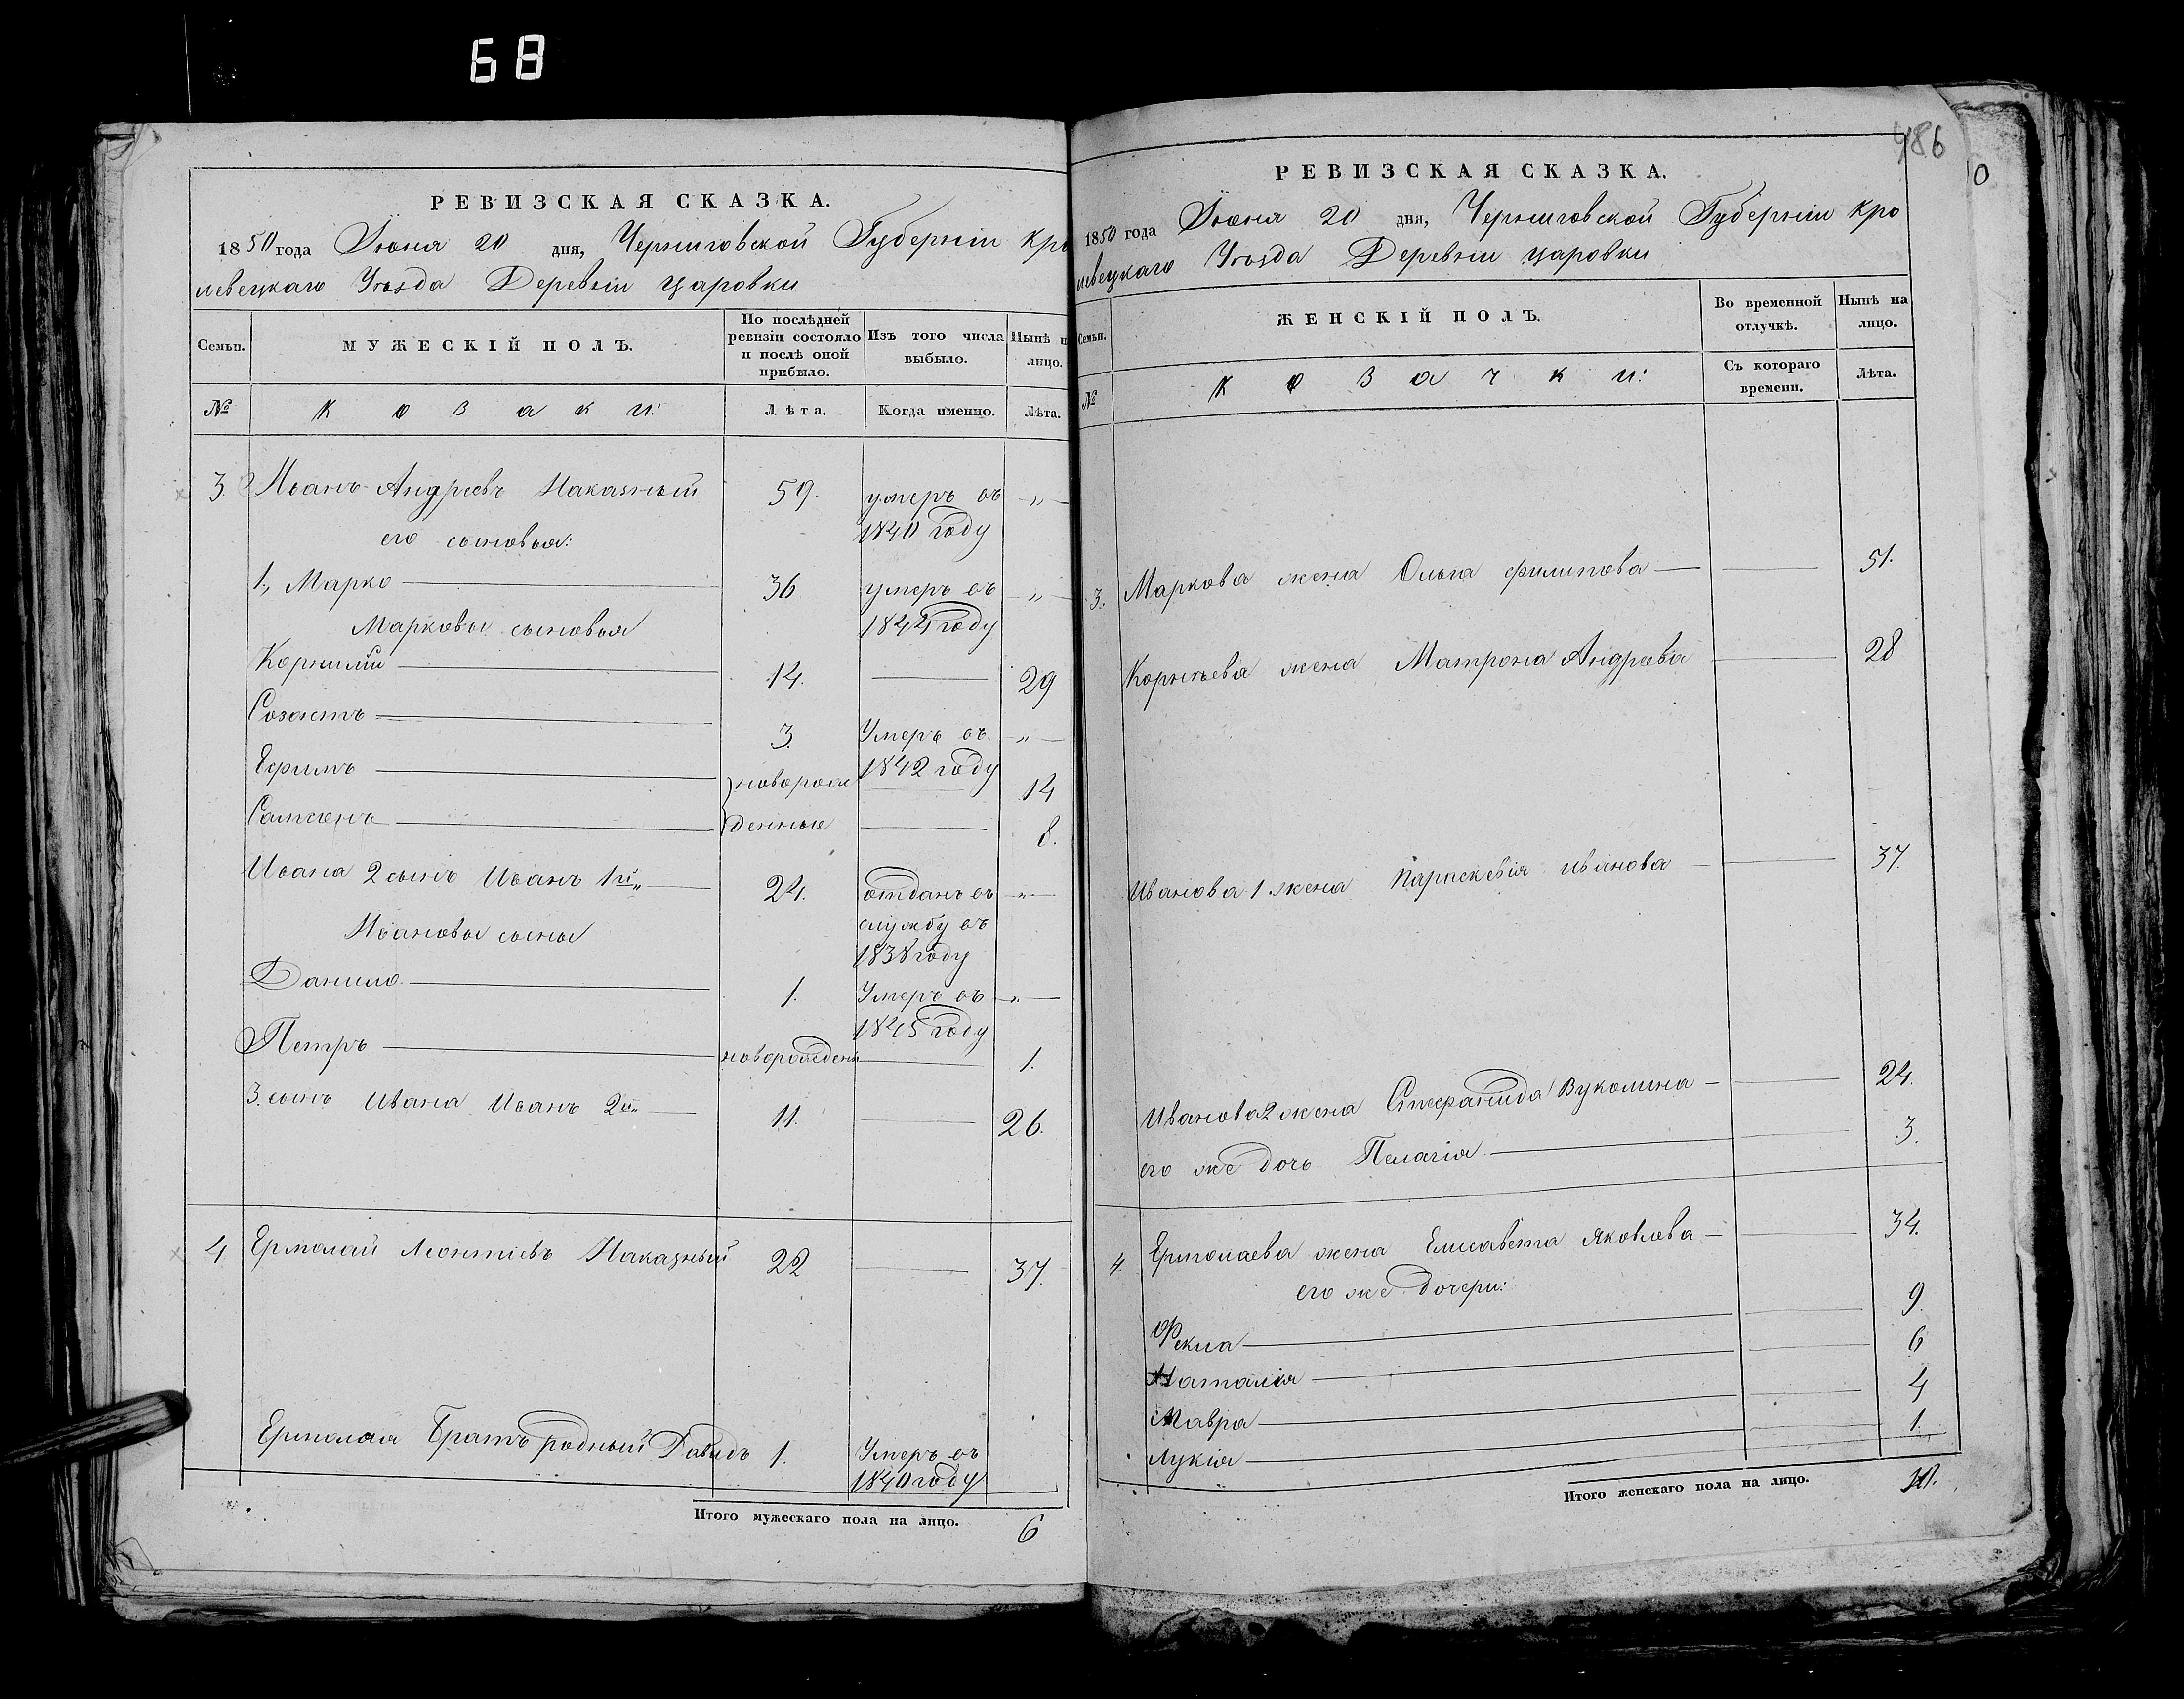 68
РЕВИЗСКАЯ СКАЗКА.
1850 года Іюня 20 дня, Черниговской Губерніи Кро
левецкаго Уѣзда Деревни Царовки
Семьи.
МУЖЕСКІЙ ПОЛЪ.
По послѣдней ревизіи состояло и послѣ оной прибыло.
Изъ того числа выбыло.
Нынѣ н лицо.
№
Козаки:
Лѣта.
Когда именно.
Лѣта.
3. Иванъ Андреевъ Наказный 59. умеръ въ „
его сыновья: 1840 году
1, Марко 36 умеръ въ „
Марковы сыновья 1844 году
Корнилій 14. 29
Созонтъ 3. Умеръ въ „
1842 году
Ефимъ новорож 14
Самоенъ денные 8.
Ивана 2 сынъ Иванъ 1й „ 24. отданъ въ „
службу въ
Ивановы сыны 1838 году
Данило 1. Умеръ въ „
1845 году
Петръ новорожденъ 1.
3. сынъ Ивана Иванъ 2й „ 11. 26.
4 Ермолай Леонтіевъ Наказный 22 37.
Ермолая Братъ родный Давидъ 1. Умеръ въ
1840 году
Итого мужескаго пола на лицо. 6
486
0
РЕВИЗСКАЯ СКАЗКА.
1850 года Іюня 20 дня, Черниговской Губерніи Кро
левецкаго Уѣзда Деревни Царовки
Семьи.
ЖЕНСКІЙ ПОЛЪ.
Во временной отлучкѣ.
Нынѣ на лицо.
№
Козачки:
Съ котораго времени.
Лѣта.
3. Маркова жена Ольга Филипова 51.
Корнѣева жена Матрона Андреева 28
Иванова 1 жена Параскевія Иванова 37.
Иванова 2 жена Стефанида Вуколина 24.
его же дочь Пелагія 3.
4. Ермолаева жена Елисавета Яковлева 34.
его же дочери:
Фекла 9.
Наталія 6
Мавра 4
Лукія 1.
Итого женскаго пола на лицо. 10.